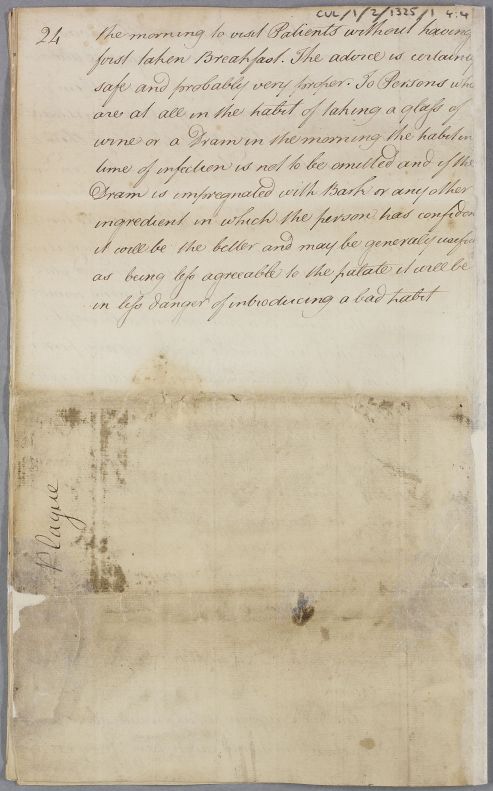 CUL/1/2/1325/1 4:4
24
the morning to visit Patients without having
first taken Breakfast. The advice is certainly
safe and probably very proper. To Persons who
are at all in the habit of taking a glass of
wine or a Dram in the morning the habit in
time of infection is not to be omitted and if the
Dram is impregnated with Bark or any other
ingredient in which the person has confidon
it will be the better and may be generally usefu
as being less agreeable to the palate it will be
in less danger of introducing a bad habit
Plague